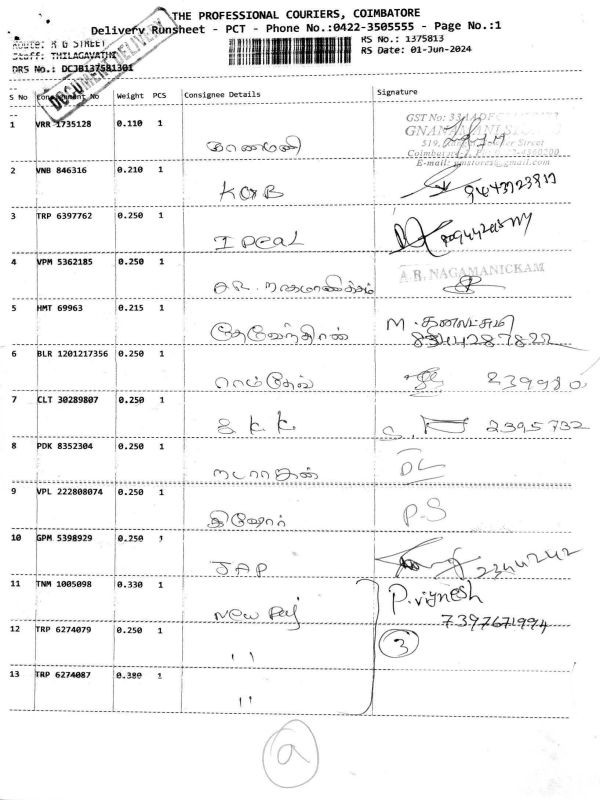 THE PROFESSIONAL COURIERS, COIMBATORE
Delivery Runsheet - PCT - Phone No.:0422-3505555 - Page No.:1
Route: R G STREET
RS No.: 1375813
Staff: THILAGAVATHI
RS Date: 01-Jun-2024
DRS No.: DCJB137581301
DOCUMENT DELIVERY
S No Consignment No Weight PCS Consignee Details Signature
GST No:
1 VRR 1735128 0.110 1
E-mail:
2 VNB 846316 0.210 1
KOB
3 TRP 6397762 0.250 1
IDEAL
4 VPM 5362185 0.250 1 A.R. NAGAMANICKAM
5 HMT 69963 0.215 1
தேவேந்திரன் M. தனலட்சுமி
8344287822
6 BLR 1201217356 0.250 1
ராம்தேவ் 239980
7 CLT 30289807 0.250 1
S.K.K 2395732
8 PDK 8352304 0.250 1
நடராஜன்
9 VPL 222808074 0.250 1
கிஷோர் P.S
10 GPM 5398929 0.250 1
JAP 2344242
11 TNM 1005098 0.330 1
New P. Vignesh
7397671994
12 TRP 6274079 0.250 1
" 3
13 TRP 6274087 0.380 1
"
a